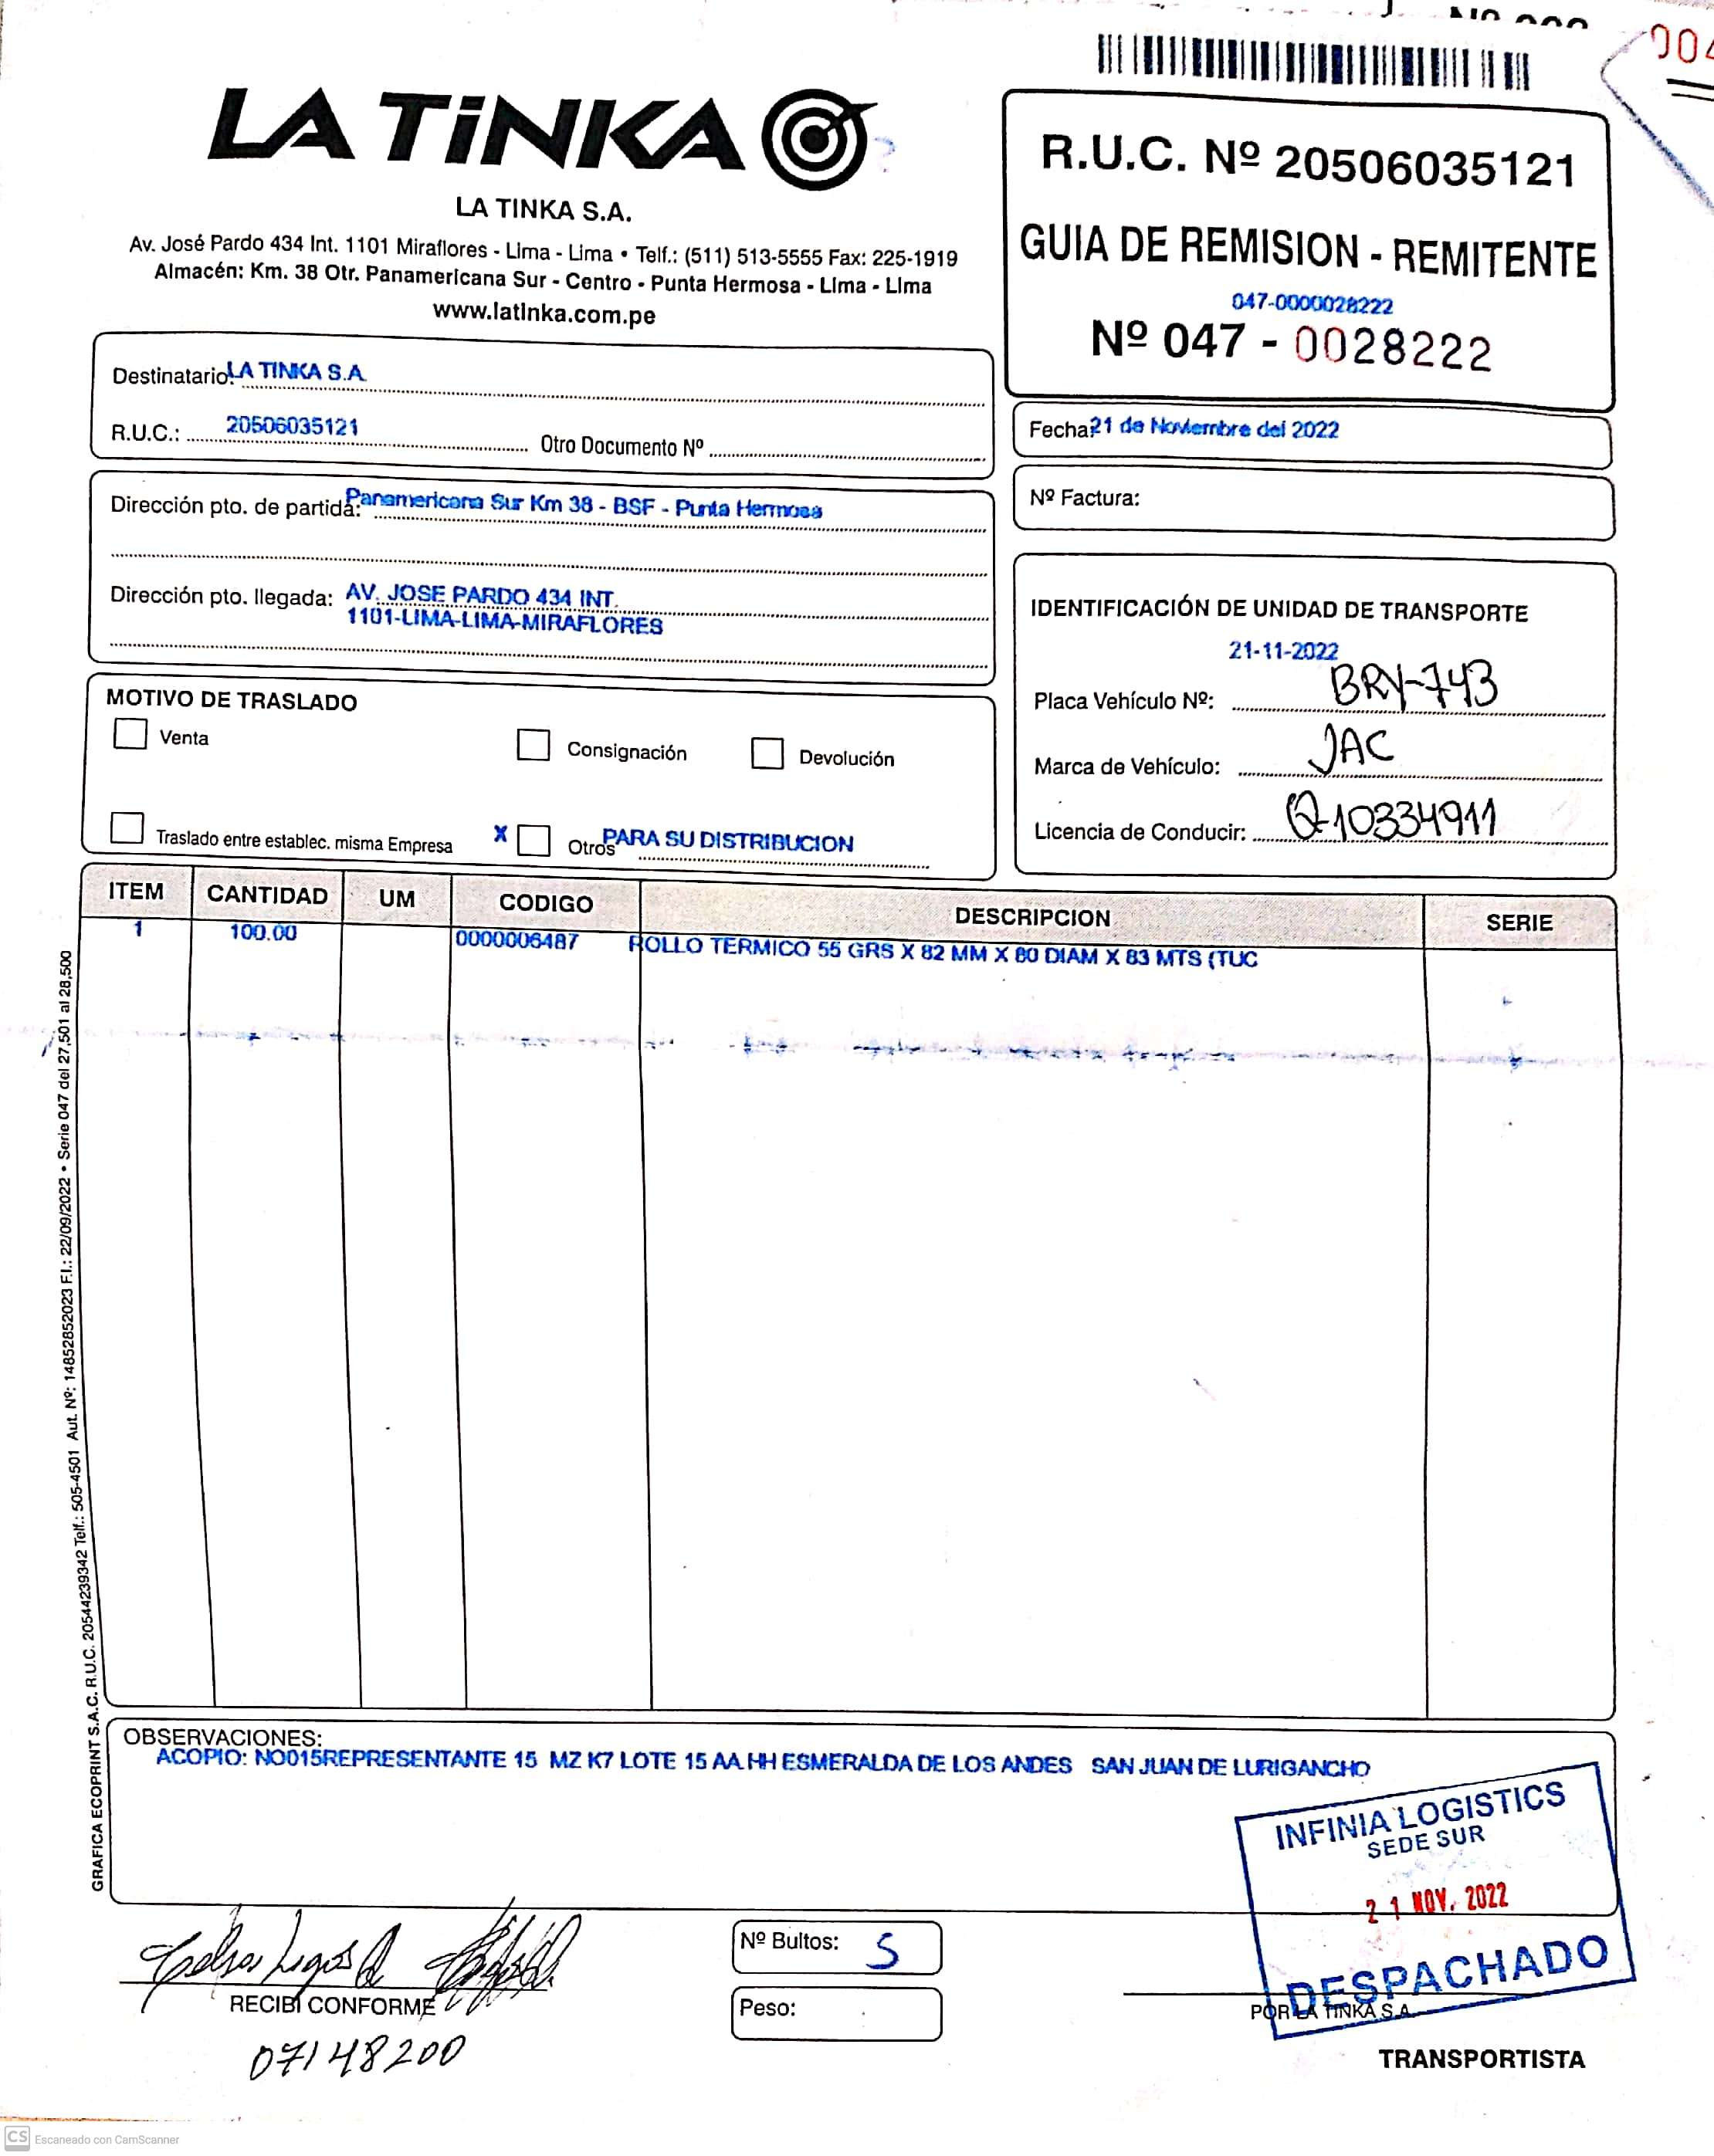 LA TiNKA
LA TINKA S.A.
Av. José Pardo 434 Int. 1101 Miraflores - Lima - Lima • Telf.: (511) 513-5555 Fax: 225-1919
Almacén: Km. 38 Otr. Panamericana Sur - Centro - Punta Hermosa - Lima - Lima
www.latinka.com.pe
004
R.U.C. Nº 20506035121
GUIA DE REMISION - REMITENTE
047-0000028222
Nº 047 - 0028222
Destinatario: LA TINKA S.A.
R.U.C.: 20506035121 Otro Documento Nº
Fecha: 21 de Noviembre del 2022
Nº Factura:
Dirección pto. de partida: Panamericana Sur Km 38 - BSF - Punta Hermosa
Dirección pto. llegada: AV. JOSE PARDO 434 INT.
1101-LIMA-LIMA-MIRAFLORES
IDENTIFICACIÓN DE UNIDAD DE TRANSPORTE
21-11-2022
Placa Vehículo Nº: BRY-743
Marca de Vehículo: JAC
Licencia de Conducir: Q-10334911
MOTIVO DE TRASLADO
Venta
Consignación
Devolución
Traslado entre establec. misma Empresa
X Otros PARA SU DISTRIBUCION
ITEM CANTIDAD UM CODIGO DESCRIPCION SERIE
1 100.00 0000006487 ROLLO TERMICO 55 GRS X 82 MM X 80 DIAM X 83 MTS (TUC
GRAFICA ECOPRINT S.A.C. R.U.C. 20544239342 Telf.: 505-4501 Aut. Nº: 14852852023 F.I.: 22/09/2022 • Serie 047 del 27,501 al 28,500
OBSERVACIONES:
ACOPIO: NO015REPRESENTANTE 15 MZ K7 LOTE 15 AA.HH ESMERALDA DE LOS ANDES SAN JUAN DE LURIGANCHO
INFINIA LOGISTICS
SEDE SUR
21 NOV. 2022
DESPACHADO
Nº Bultos: 5
Peso:
RECIBÍ CONFORME
07148200
POR LA TINKA S.A.
TRANSPORTISTA
CS Escaneado con CamScanner